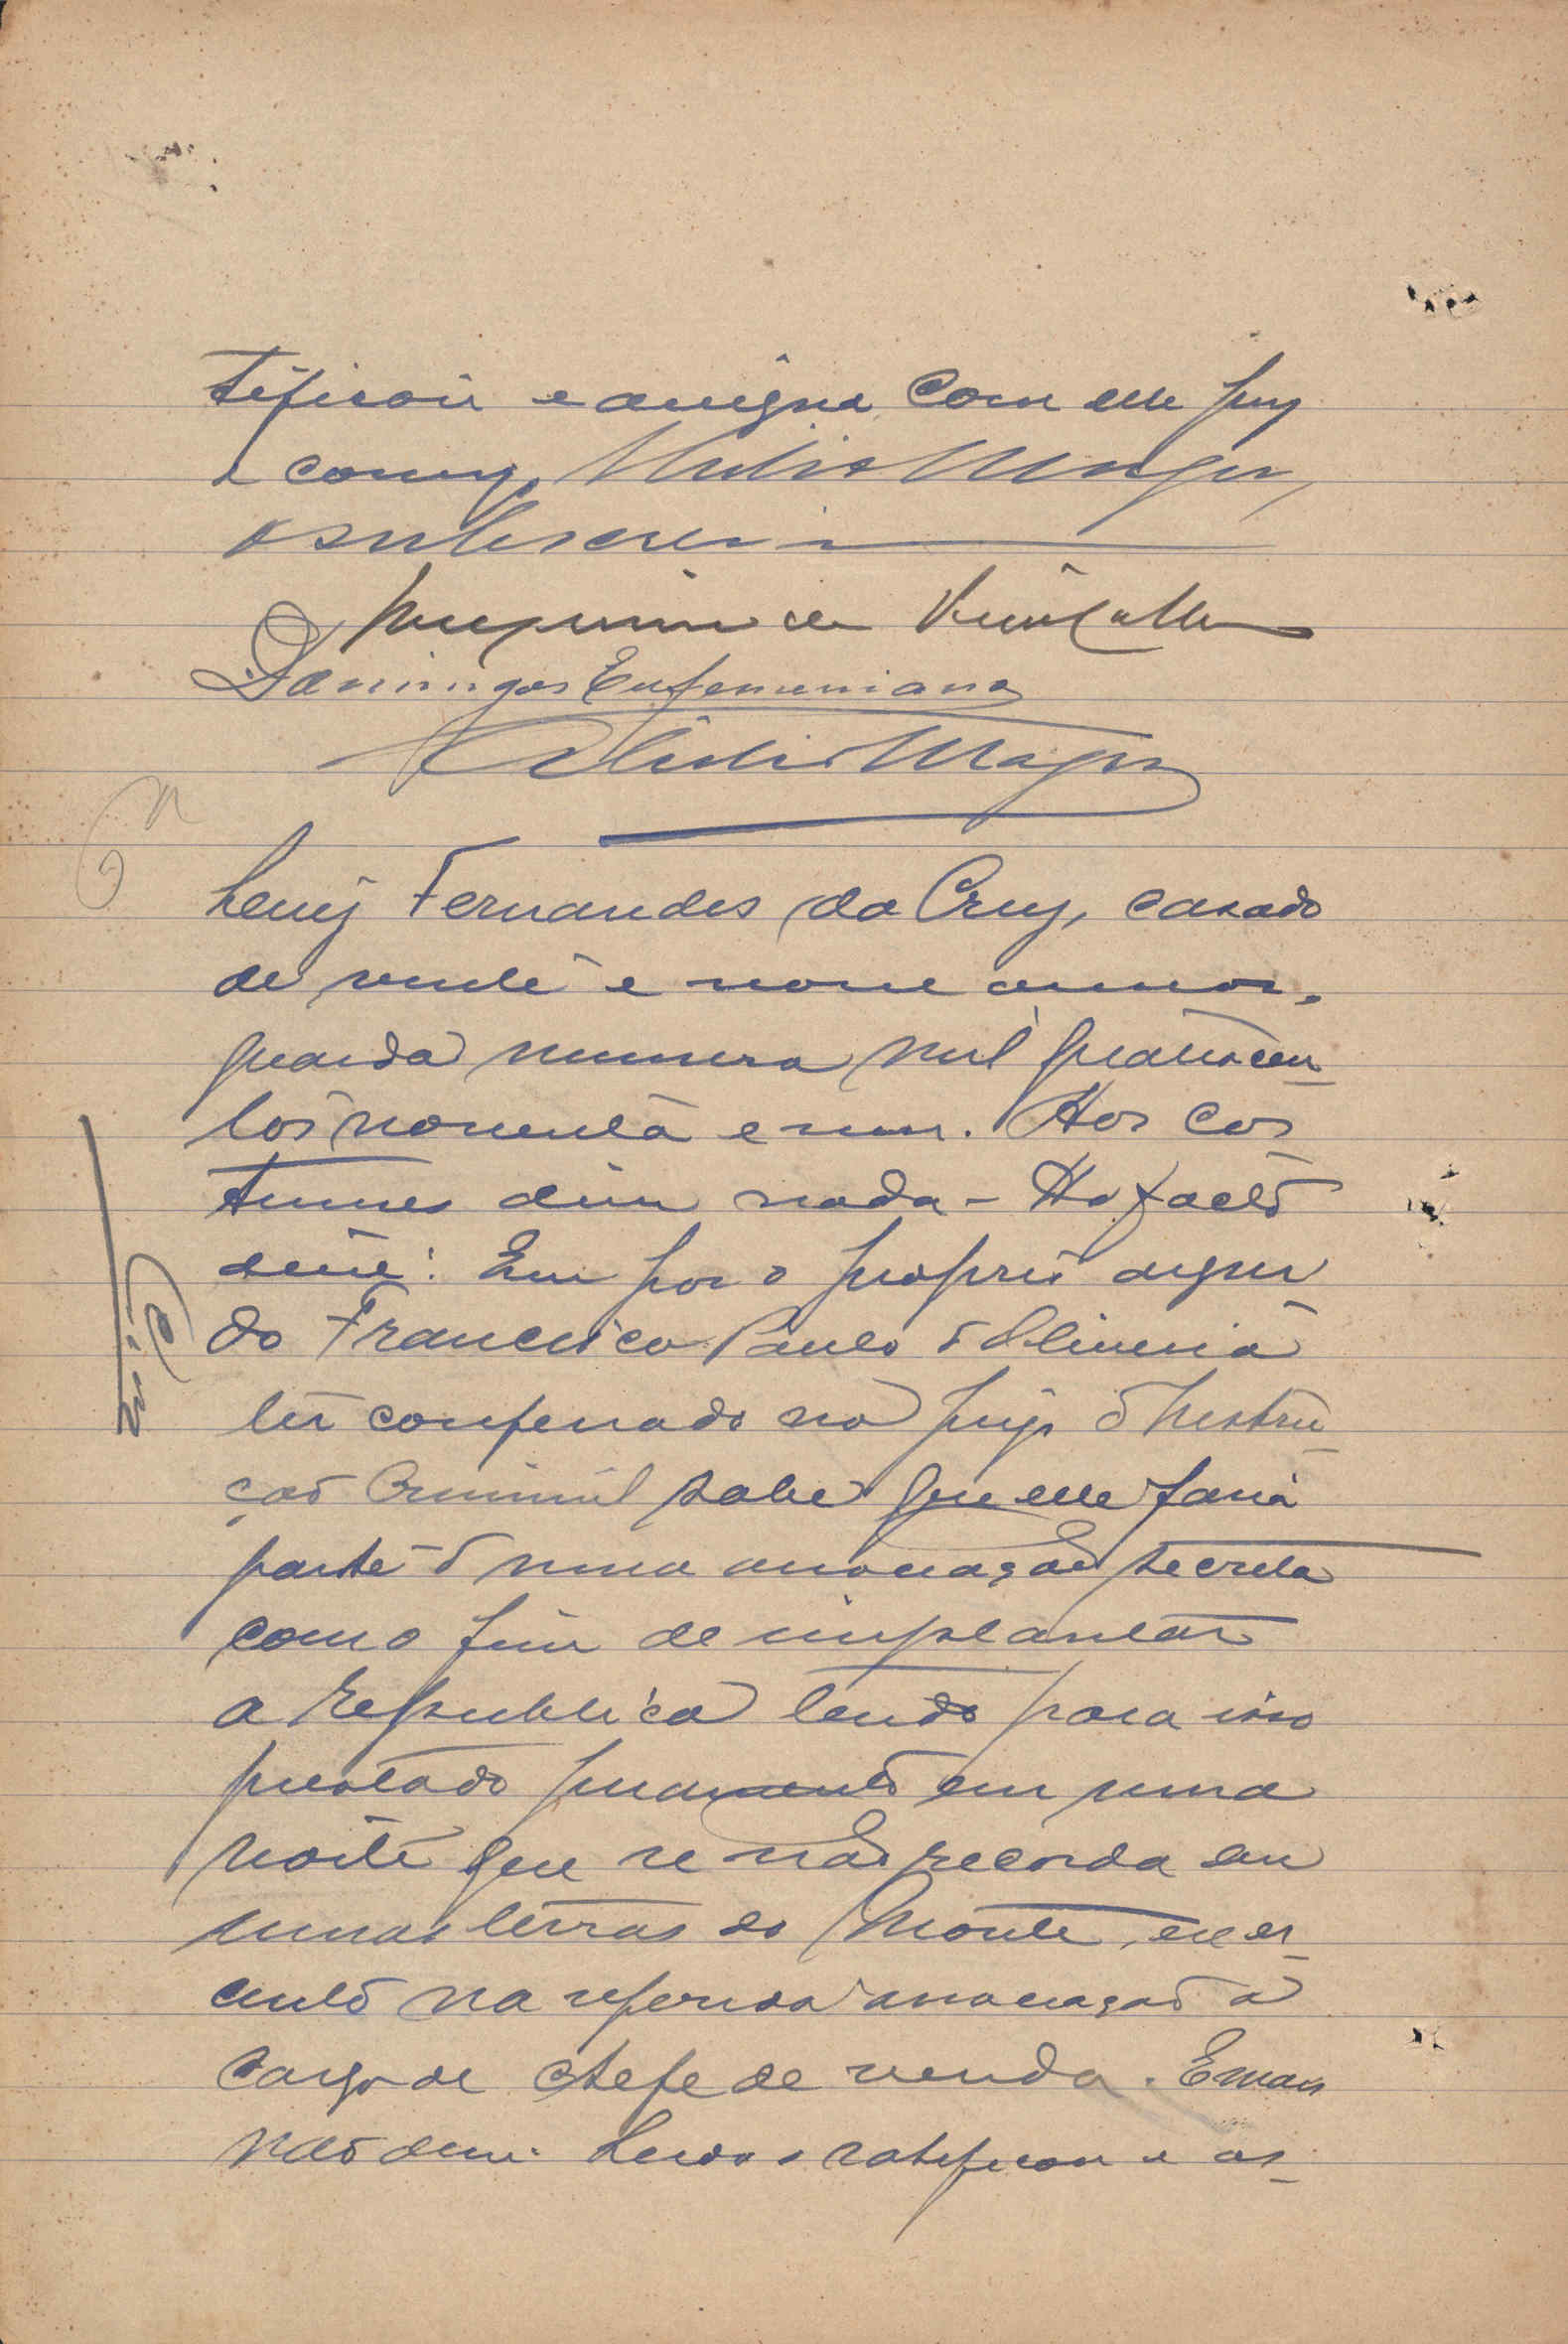 tificou e assigna com elle juiz
e comigo,
o subscrevi
Domingos Eufemiano
Luiz Fernandes da Cruz, casado
de vinte e nove annos,
guarda numero mil quatrocen-
tos noventa e um. Aos cos-
tumes disse nada - Ao facto
disse: Em por o proprio argui-
do Francisco Paulo d'Oliveira
ter confessado no juizo d'Instru-
ção Criminal sabe que elle fazia
parte d'uma associação secreta
com o fim de implantar
a Republica tendo para isso
prestado juramento em uma
noite que se não recorda em
umas terras do Monte, exer-
cendo na referida associação o
cargo de chefe de venda. E mais
não disse. Lido o ratificou e as-